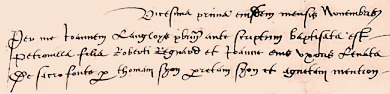 Vicesima prima eiusdem mensis Novembris
Per me Joannem Langloys pbrum ante scriptum baptisata est
Petronella filia Roberti Regnaud et Joanne eius uxoris Levata
De sacro fonte p thomam et agnetem mention